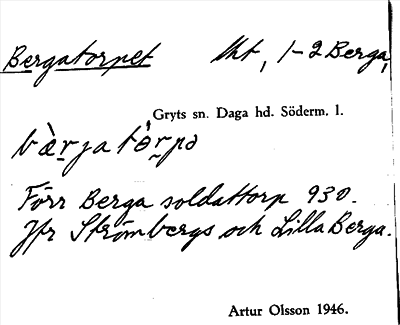 Bergatorpet lht, 1-2 Berga,
Gryts sn. Daga hd. Söderm. l.
bàrjatòrpə
Förr Berga soldattorp 930.
Jfr Strömbergs och Lilla Berga.
Artur Olsson 1946.